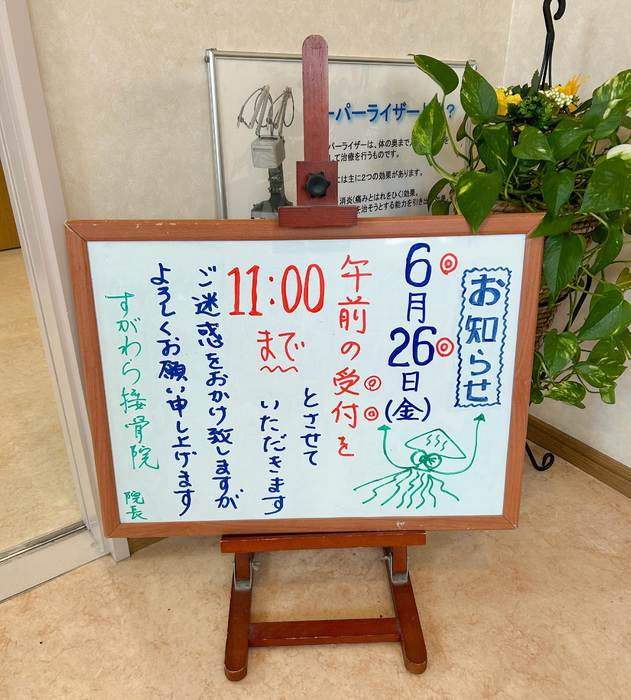 お知らせ
6月26日(金)
午前の受付を
11:00まで
とさせて
いただきます
ご迷惑をおかけ致しますが
よろしくお願い申し上げます
すがわら接骨院 院長
ーパーライザー
？
パーライザーは、体の奥まで
して治療を行うものです。
には主に2つの効果があります。
消炎(痛みとはれをひく)効果。
を治そうとする能力を引き出